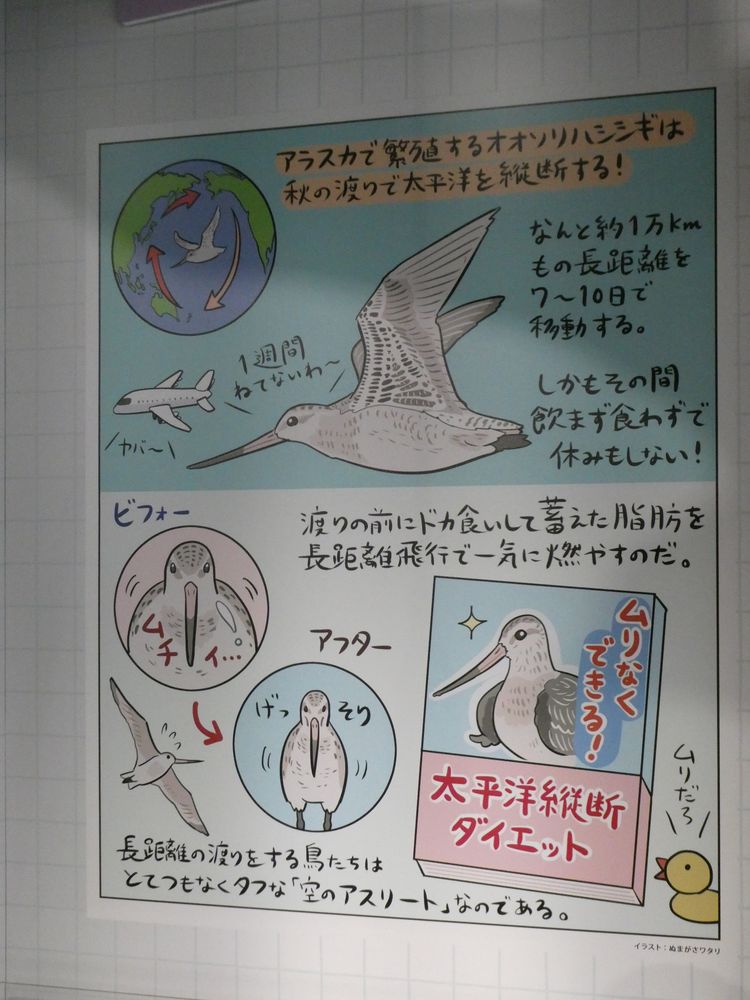 アラスカで繁殖するオオソリハシシギは
秋の渡りで太平洋を縦断する!
なんと約1万km
もの長距離を
7〜10日で
移動する。
1週間
ねてないわ〜
ヤバ〜
しかもその間
飲まず食わずで
休みもしない!
ビフォー
渡りの前にドカ食いして蓄えた脂肪を
長距離飛行で一気に燃やすのだ。
ムチィ…
アフター
げっそり
ムリなく
できる!
太平洋縦断
ダイエット
ムリだろ
長距離の渡りをする鳥たちは
とてつもなくタフな「空のアスリート」なのである。
イラスト:ぬまがさワタリ